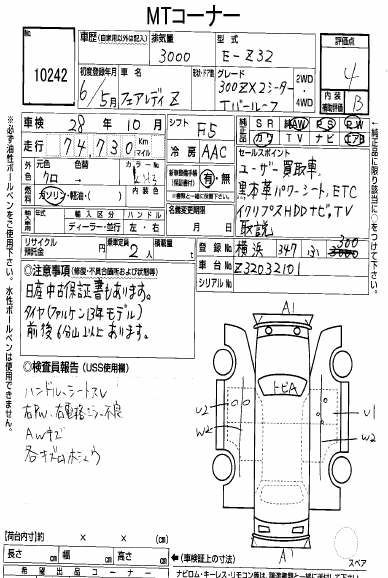 MTコーナー
No.
10242
車歴 (自家用以外は記入)
排気量
3000
型式
E-Z32
評価点
4
内装
補助評価
B
初度登録年月
6/5月
車名
フェアレディZ
形状・ドア数
グレード
300ZX2シーター
Tバールーフ
2WD
4WD
車検 28年10月
走行 74730 km マイル
シフト F5
冷房 AAC
純正品
SR AW PS PW
カワ TV ナビ エアB
外色
元色
クロ
色替
カラーNo.
燃料
ガソリン・軽油・( )
内装色
新車整備手帳
(保証書付)
有・無
セールスポイント
ユーザー買取車
黒本革パワーシート、ETC
イクリプスHDDナビ、TV
取説
年式
輸入区分
ディーラー・並行
ハンドル
左・右
名義変更期限
月 日
リサイクル
預託金
円
乗車定員
2人
積載量
t
登録No.
横浜 347 ふ 300
車台No.
Z32032101
シリアルNo.
◎注意事項 (修復・不具合箇所および状態等)
日産中古保証書もあります。
タイヤ(ファルケン13年モデル)
前後6分山以上あります。
◎検査員報告 (USS使用欄)
ハンドル、シートスレ
右PW、右電格ミラー不良
AWキズ
各キズ小ホシュウ
A1
トビA
U2
W2
U1
W2
A1
スペア
※必ず油性ボールペンをご使用下さい。水性ボールペンは使用できません。
※純正品に限り該当に○をつけて下さい。
[荷台内寸] × × (cm)
長さ cm 幅 cm 高さ cm
(車検証上の寸法)
希望出品コーナー